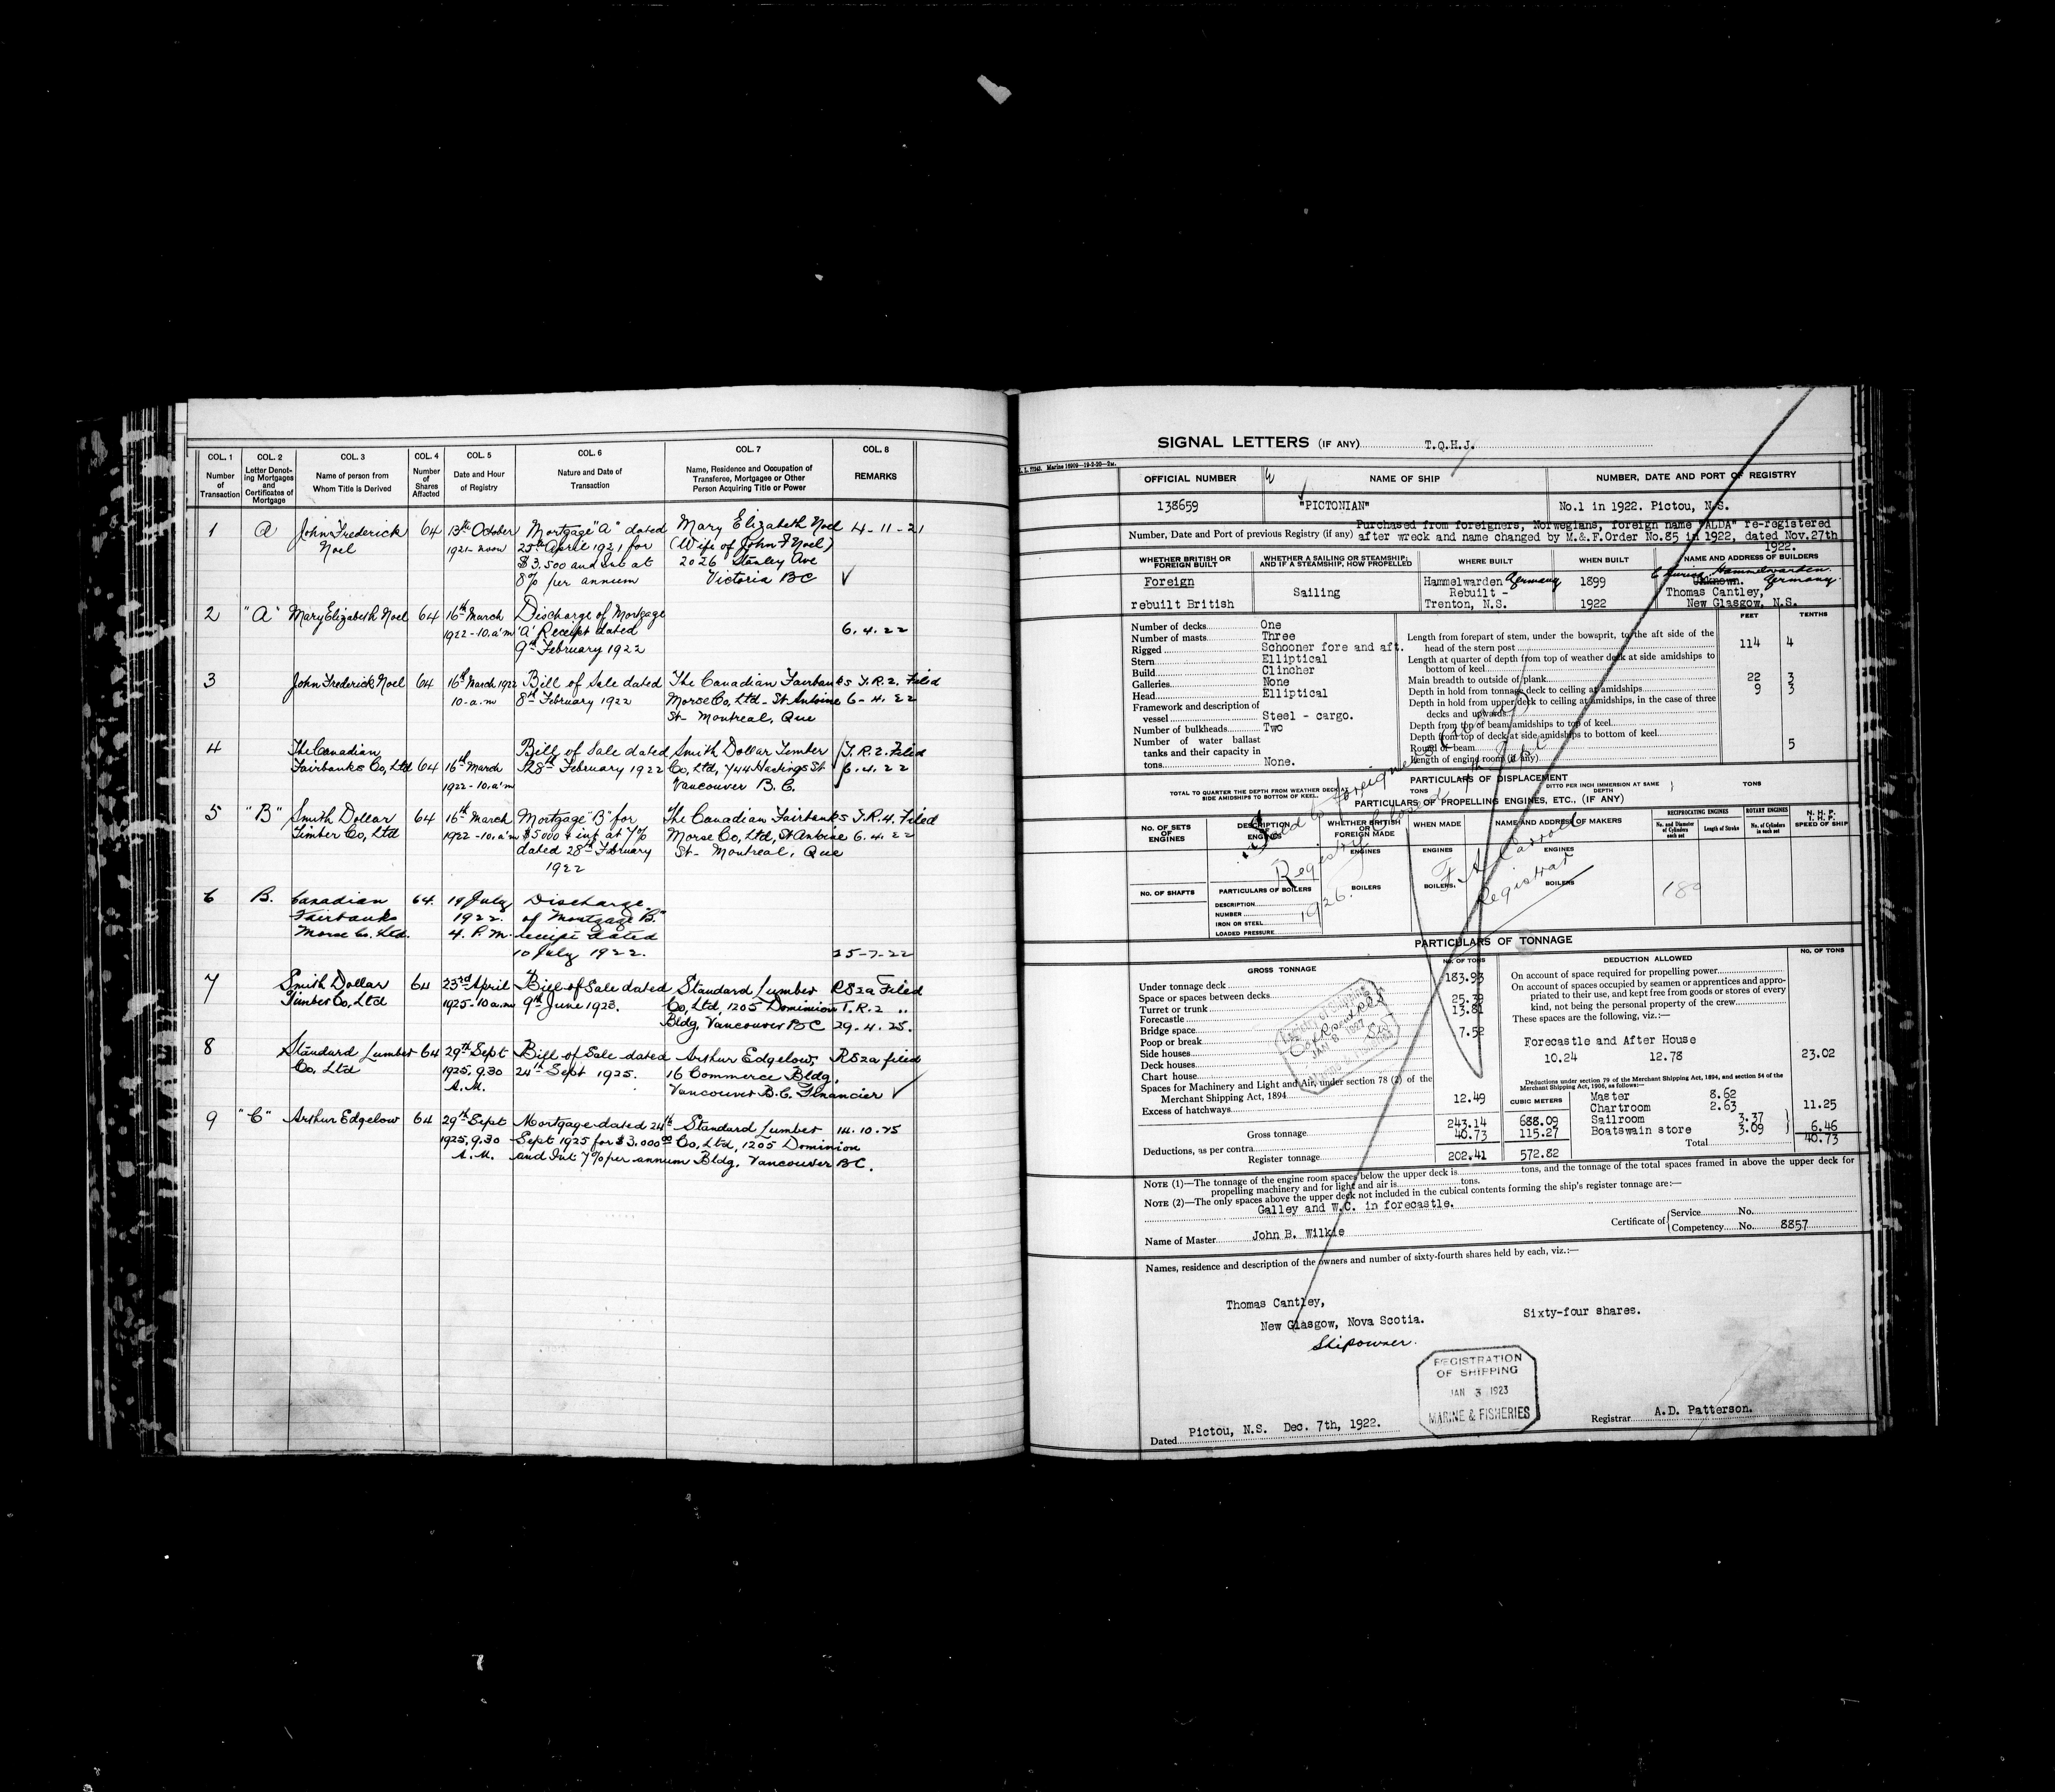 COL. 1
Number
of
Transaction
COL. 2
Letter Denot-
ing Mortgages
and
Certificates of
Mortgage
COL. 3
Name of person from
Whom Title is Derived
COL. 4
Number
of
Shares
Affected
COL. 5
Date and Hour
of Registry
COL. 6
Nature and Date of
Transaction
COL. 7
Name, Residence and Occupation of
Transferee, Mortgagee or Other
Person Acquiring Title or Power
COL. 8
REMARKS
1 a John Frederick 64 13th October Mortgage "A" dated Mary Elizabeth Noel 4-11-21
Noel 1921 noon 25th April 1921 for (Wife of John F Noel)
$3,500 and int at 2026 Stanley Ave
8% per annum Victoria BC
2 "A" Mary Elizabeth Noel 64 16th March Discharge of Mortgage
1922-10.a'm 'A' Receipt dated 6.4.22
9th February 1922
3 John Frederick Noel 64 16th March 1922 Bill of Sale dated The Canadian Fairbanks T.R.2. Filed
10-a.m 8th February 1922 Morse Co, Ltd - St Antoine 6-4.22
St- Montreal, Que
4 The Canadian Bill of Sale dated Smith Dollar Timber T.R.2. Filed
Fairbanks Co, Ltd 64 16th March 28th February 1922 Co, Ltd, 744 Hastings St 6.4.22
1922-10.a'm Vancouver B.C.
5 "B" Smith Dollar 64 16th March Mortgage "B" for The Canadian Fairbanks T.R.4. Filed
Timber Co, Ltd 1922-10.a'm $5000 & int at 7% Morse Co, Ltd, St Antoine 6.4.22
dated 28th February St- Montreal, Que
1922
6 B. Canadian 64. 19 July Discharge
Fairbanks 1922. of Mortgage B."
Morse Co. Ltd. 4. P.M. receipt dated
10 July 1922. 25-7-22
7 Smith Dollar 64 23rd April Bill of Sale dated Standard Lumber R52a Filed
Timber Co, Ltd 1925-10a.m 9th June 1923. Co, Ltd, 1205 Dominion T.R.2 "
Bldg, Vancouver BC 29.4.25.
8 Standard Lumber 64 29th Sept Bill of Sale dated Arthur Edgelow, R52a filed
Co, Ltd 1925, 9.30 24th Sept 1925. 16 Commerce Bldg,
A.M. Vancouver B.C. Financier
9 "C" Arthur Edgelow 64 29th Sept Mortgage dated 24th Standard Lumber 14.10.25
1925, 9.30 Sept 1925 for $3,000 00 Co, Ltd, 1205 Dominion
A.M. and Int 7% per annum Bldg, Vancouver BC.
SIGNAL LETTERS (IF ANY) T.Q.H.J.
OFFICIAL NUMBER NAME OF SHIP NUMBER, DATE AND PORT OF REGISTRY
138659 "PICTONIAN" No.1 in 1922. Pictou, N.S.
Purchased from foreigners, Norwegians, foreign name "ALDA" re-registered
Number, Date and Port of previous Registry (if any) after wreck and name changed by M.&.F.Order No.85 in 1922, dated Nov.27th
1922.
WHETHER BRITISH OR FOREIGN BUILT
WHETHER A SAILING OR STEAMSHIP; AND IF A STEAMSHIP, HOW PROPELLED
WHERE BUILT
WHEN BUILT
NAME AND ADDRESS OF BUILDERS
Foreign Sailing Hammelwarden Germany 1899 Unknown. Hammelwarden Germany
Rebuilt - Thomas Cantley,
rebuilt British Trenton, N.S. 1922 New Glasgow, N.S.
FEET TENTHS
Number of decks One
Number of masts Three
Rigged Schooner fore and aft.
Stern Elliptical
Build Clincher
Galleries None
Head Elliptical
Framework and description of
vessel Steel - cargo.
Number of bulkheads Two
Number of water ballast
tanks and their capacity in
tons None.
Length from forepart of stem, under the bowsprit, to the aft side of the
head of the stern post 114 4
Length at quarter of depth from top of weather deck at side amidships to
bottom of keel
Main breadth to outside of plank 22 3
Depth in hold from tonnage deck to ceiling at amidships 9 3
Depth in hold from upper deck to ceiling at amidships, in the case of three
decks and upwards
Depth from top of beam amidships to top of keel
Depth from top of deck at side amidships to bottom of keel
Round of beam 5
Length of engine room (if any)
PARTICULARS OF DISPLACEMENT
TOTAL TO QUARTER THE DEPTH FROM WEATHER DECK AT
SIDE AMIDSHIPS TO BOTTOM OF KEEL. TONS
DITTO PER INCH IMMERSION AT SAME
DEPTH TONS
PARTICULARS OF PROPELLING ENGINES, ETC., (IF ANY)
NO. OF SETS OF ENGINES
DESCRIPTION OF ENGINES
WHETHER BRITISH OR FOREIGN MADE
WHEN MADE
NAME AND ADDRESS OF MAKERS
RECIPROCATING ENGINES
No. and Diameter of Cylinders each set
Length of Stroke
ROTARY ENGINES
No. of Cylinders in each set
N. H. P.
I. H. P.
SPEED OF SHIP
ENGINES ENGINES ENGINES
NO. OF SHAFTS PARTICULARS OF BOILERS BOILERS BOILERS. BOILERS
DESCRIPTION
NUMBER
IRON OR STEEL
LOADED PRESSURE
Sold to foreigners
Registry Closed
1926.
Registrar
PARTICULARS OF TONNAGE
GROSS TONNAGE NO. OF TONS
DEDUCTION ALLOWED NO. OF TONS
Under tonnage deck 183.93
Space or spaces between decks
Turret or trunk 25.39
Forecastle 13.81
Bridge space
Poop or break 7.52
Side houses
Deck houses
Chart house
Spaces for Machinery and Light and Air, under section 78 (2) of the
Merchant Shipping Act, 1894
Excess of hatchways 12.49
Gross tonnage 243.14 688.09
Deductions, as per contra 40.73 115.27
Register tonnage 202.41 572.82
CUBIC METERS
On account of space required for propelling power
On account of spaces occupied by seamen or apprentices and appro-
priated to their use, and kept free from goods or stores of every
kind, not being the personal property of the crew
These spaces are the following, viz.:—
Forecastle and After House
10.24 12.78 23.02
Deductions under section 79 of the Merchant Shipping Act, 1894, and section 54 of the
Merchant Shipping Act, 1906, as follows:—
Master 8.62
Chartroom 2.63 11.25
Sailroom 3.37
Boatswain store 3.09 6.46
Total 40.73
NOTE (1)—The tonnage of the engine room spaces below the upper deck is tons, and the tonnage of the total spaces framed in above the upper deck for
propelling machinery and for light and air is tons.
NOTE (2)—The only spaces above the upper deck not included in the cubical contents forming the ship's register tonnage are:—
Galley and W.C. in forecastle.
Name of Master John B. Wilkie
Certificate of Service No.
Competency No. 8857
Names, residence and description of the owners and number of sixty-fourth shares held by each, viz.:—
Thomas Cantley,
New Glasgow, Nova Scotia. Sixty-four shares.
Shipowner.
REGISTRATION
OF SHIPPING
JAN 3 1923
MARINE & FISHERIES
Dated Pictou, N.S. Dec. 7th, 1922.
Registrar A.D. Patterson.